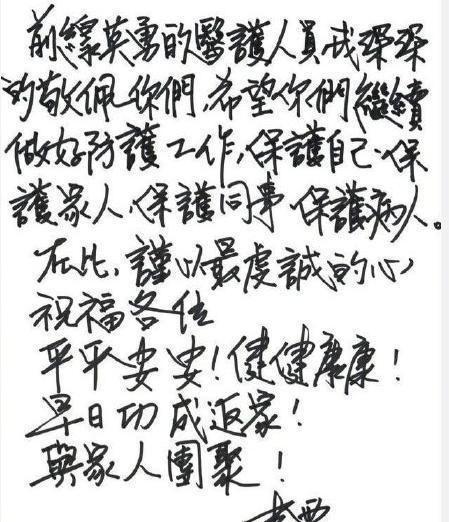 前線英勇的醫護人員我深深
的敬佩你們,希望你們繼續
做好防護工作,保護自己.保
護家人.保護同事.保護病人。
在此,謹以最虔誠的心
祝福各位
平平安安!健健康康!
早日功成返家!
與家人團聚!